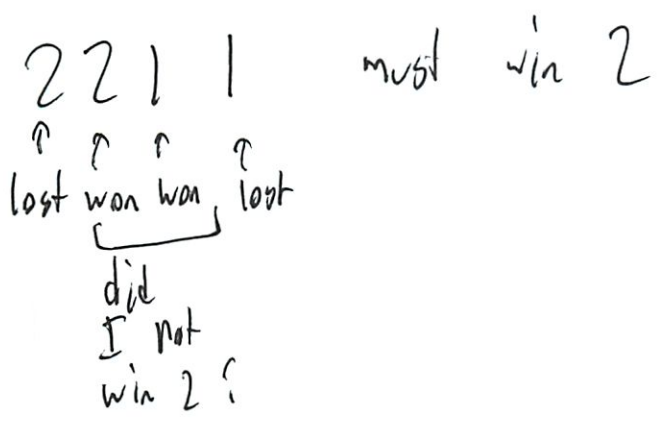 2 2 1 1 must win 2
↑ ↑ ↑ ↑
lost won won lost
did
I not
win 2 ?